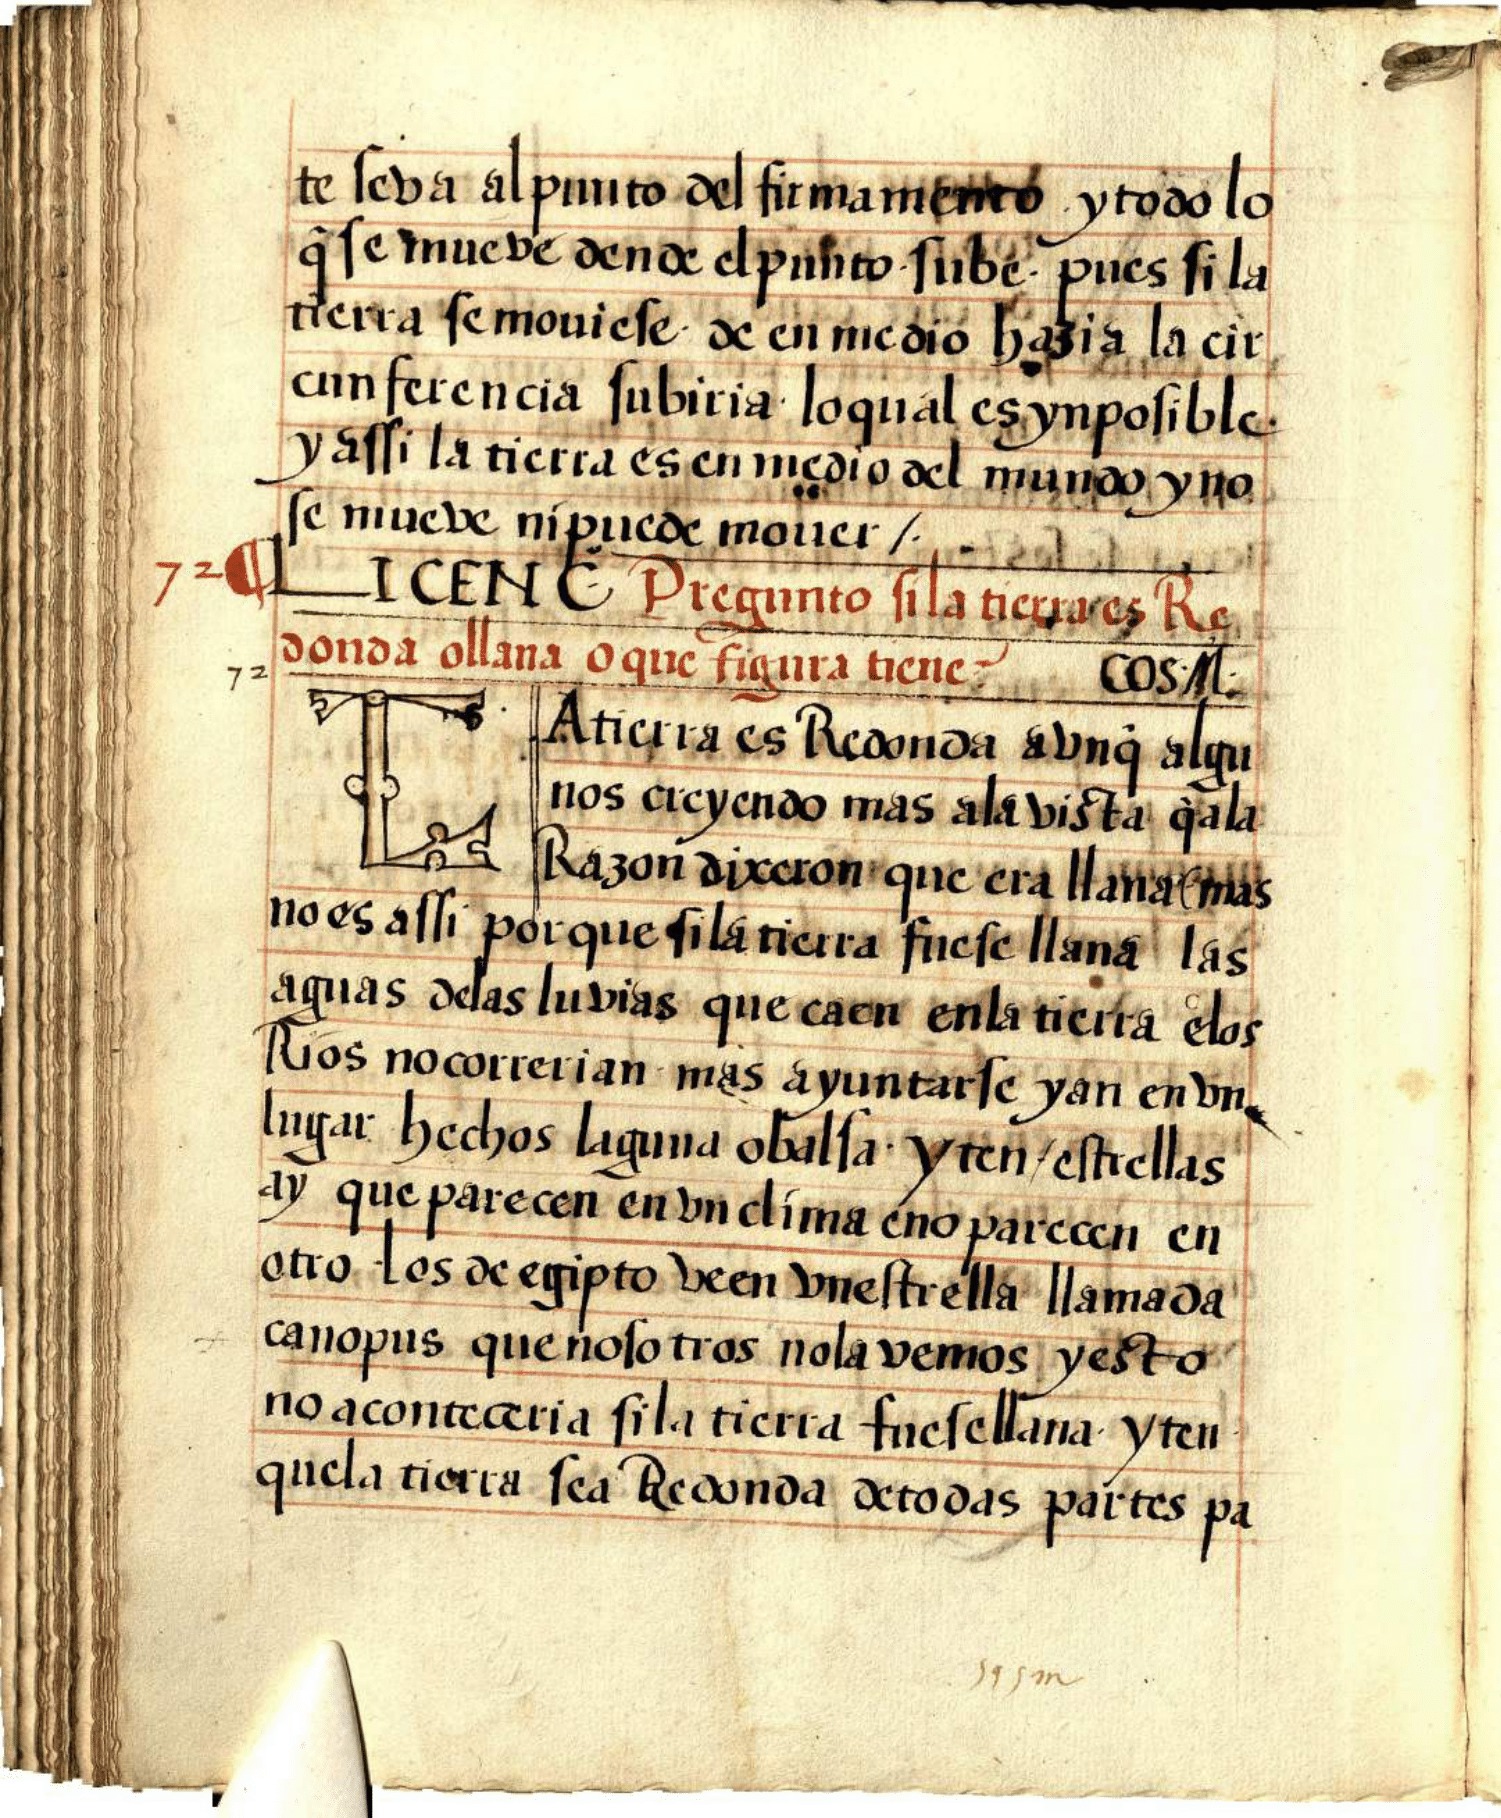 te seva al punto del firmamento y todo lo
q̃ se mueve dende el punto · sube · pues si la
tierra se moviese · de en medio hazia la cir
cunferencia subiria · lo qual es ynposible ·
y assi la tierra es en medio del mundo y no
se mueve ni puede mover /.
72 ¶ LICENC̃ Pregunto si la tierra es Re
donda o llana o que figura tiene
72 COS · M ·
LA tierra es Redonda avnq̃ algu
nos creyendo mas a la vista q̃ a la
Razon dixeron que era llana (mas
no es assi porque si la tierra fuese llana las
aguas de las luvias que caen en la tierra e los
Rios no correrian mas ayuntarse yan en vn
lugar hechos laguna o balsa · yten / estrellas
ay que parecen en vn clima e no parecen en
otro · los de egipto veen vnestrella llamada
canopus que nosotros no la vemos y esto
no aconteceria si la tierra fuese llana · yten
que la tierra sea Redonda de todas partes pa